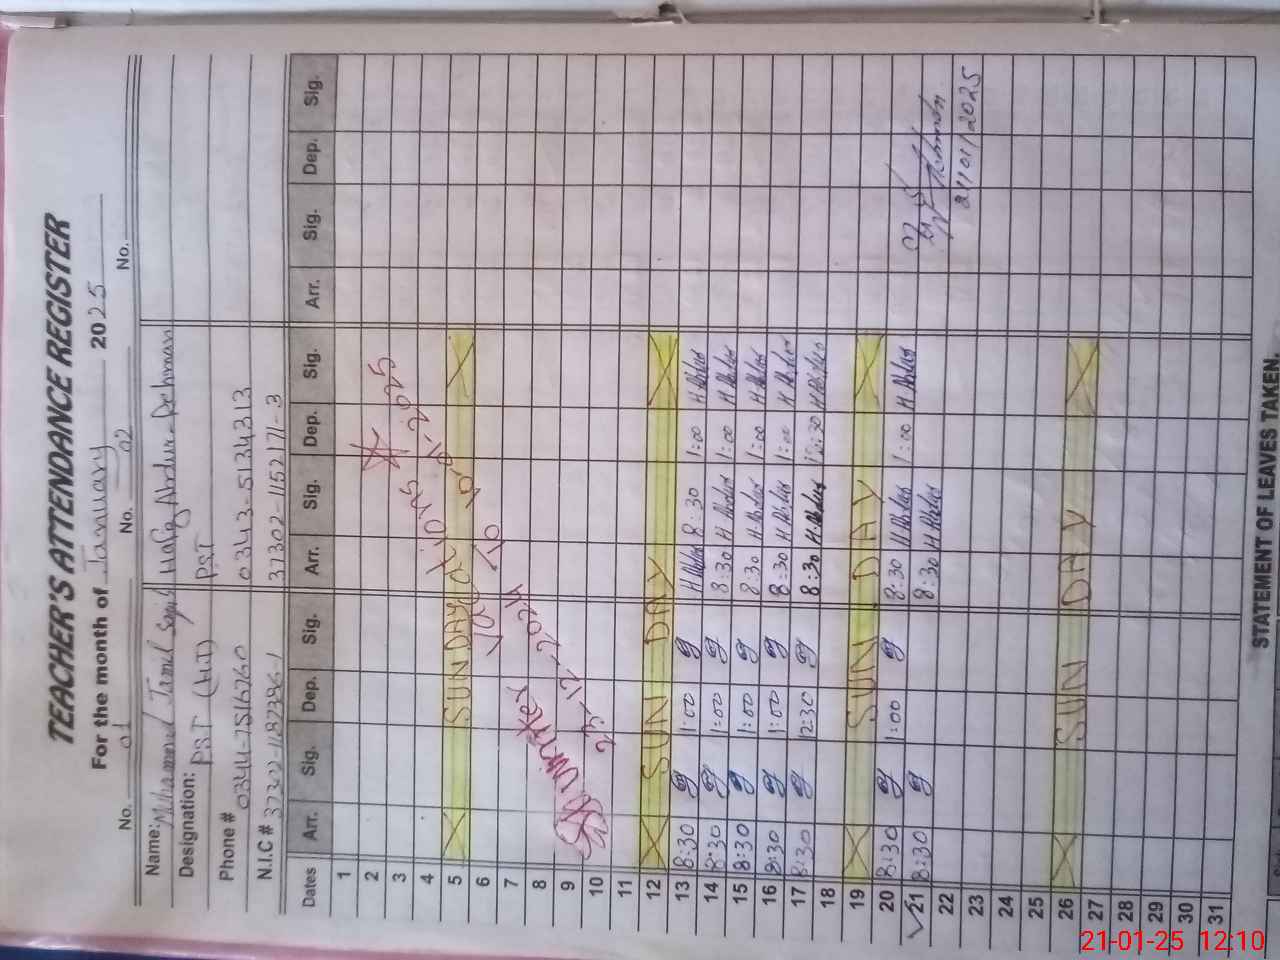 TEACHER'S ATTENDANCE REGISTER
For the month of January 2025
No. 01 No. 02 No.
Name: Muhammad Jamil Hafiz Abdur-Rehman
Designation: PST PST
Phone # 0343-5134313
N.I.C # 37302-1152171-3
Dates Arr. Sig. Dep. Sig. Arr. Sig. Dep. Sig. Arr. Sig. Dep. Sig.
1
2
3
4
5 SUNDAY
6
7
8
9
10
11
Winter vacations
23-12-2024 To
12 SUN DAY
13 8:30 1:00 8:30 1:00
14 8:30 1:00 8:30 1:00
15 8:30 1:00 8:30 1:00
16 8:30 1:00 8:30 1:00
17 8:30 12:30 8:30 12:30
18
19 SUN DAY
20 8:30 1:00 8:30 1:00
21 8:30 8:30
22
23 21/01/2025
24
25
26 SUN DAY
27
28
29
30
31
STATEMENT OF LEAVES TAKEN
21-01-25 12:10